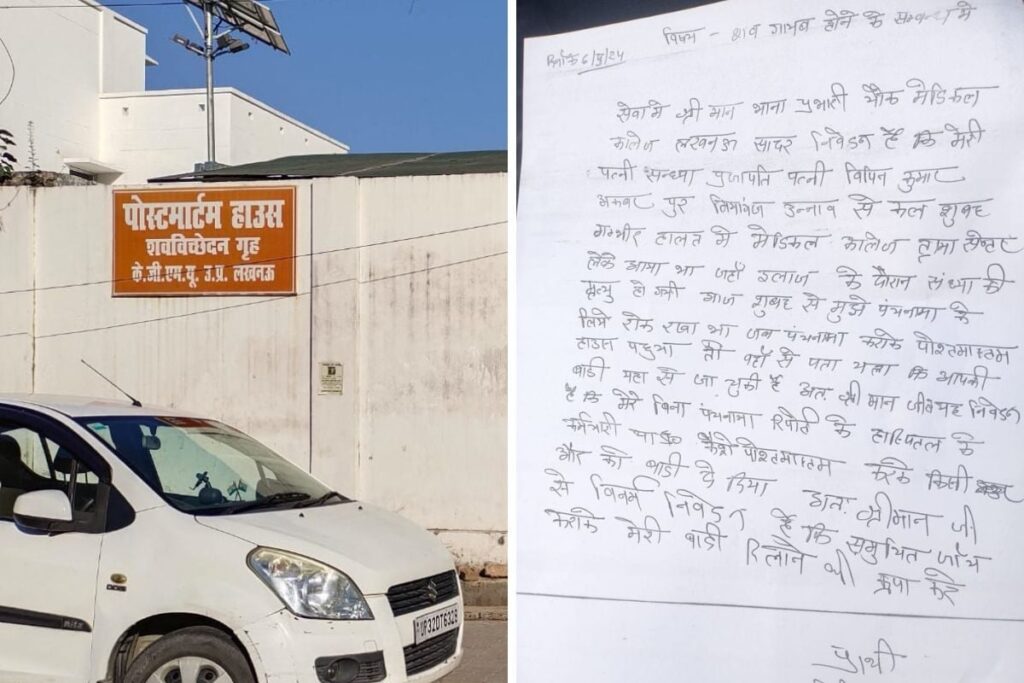 पोस्टमार्टम हाउस
शवविच्छेदन गृह
के.जी.एम.यू. उ.प्र. लखनऊ
UP32DT6328
विषय - शव गायब होने के सम्बन्ध मे
दिनाँक 6/9/24
सेवा मे श्री मान थाना प्रभारी चौक मेडिकल
कालेज लखनऊ सादर निवेदन है कि मेरी
पत्नी सन्ध्या प्रजापति पत्नी विपिन कुमार
अकबर पुर मियागंज उन्नाव से कल शुबह
गम्भीर हालत मे मेडिकल कालेज ट्रामा सेन्टर
लेके आया था जहाँ इलाज के दौरान संध्या की
मृत्यु हो गयी आज शुबह से मुझे पंचनामा के
लिये रोक रखा था जब पंचनामा कराके पोस्तमास्तम
हाउस पहुचा तो वहाँ से पता चला कि आपकी
बाडी यहा से जा चुकी है अतः श्री मान जी यह निवेदन
है कि मेरे बिना पंचनामा रिपोर्ट के हास्पितल के
कर्मचारी कैसे पोस्तमास्तम करके किसी
और को बाडी दे दिया अतः श्रीमान जी
से विनम्र निवेदन है कि समुचित जाँच
कराके मेरी बाडी दिलाने की कृपा करे
प्रार्थी